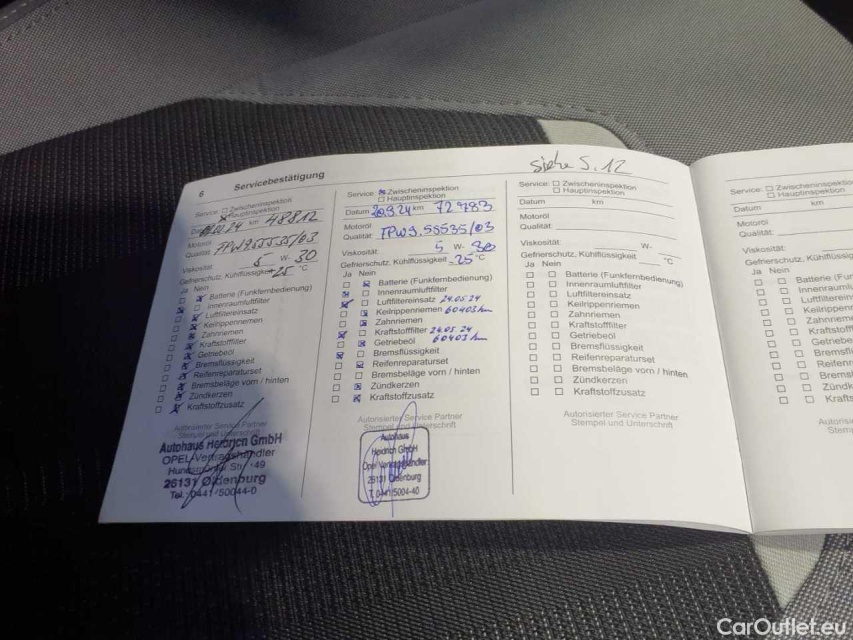 6 Servicebestätigung
Service: Zwischeninspektion
Hauptinspektion
24 km 48812
Motoröl
Qualität: TPW955535/03
Viskosität: 5 W- 30
Gefrierschutz, Kühlflüssigkeit -25 °C
Ja Nein
Batterie (Funkfernbedienung)
Innenraumluftfilter
Luftfiltereinsatz
Keilrippenriemen
Zahnriemen
Kraftstofffilter
Getriebeöl
Bremsflüssigkeit
Reifenreparaturset
Bremsbeläge vorn / hinten
Zündkerzen
Kraftstoffzusatz
Autorisierter Service Partner
Stempel und Unterschrift
Autohaus Heinrich GmbH
OPEL-Vertragshändler
Str. 149
26131 Oldenburg
Tel. 0441/50044-0
Service: Zwischeninspektion
Hauptinspektion
Datum 20.9.24 km 72983
Motoröl
Qualität: TPW9.55535/03
Viskosität: 5 W- 30
Gefrierschutz, Kühlflüssigkeit -25 °C
Ja Nein
Batterie (Funkfernbedienung)
Innenraumluftfilter
Luftfiltereinsatz 24.05.24
Keilrippenriemen 60403km
Zahnriemen
Kraftstofffilter 24.05.24
Getriebeöl 60403km
Bremsflüssigkeit
Reifenreparaturset
Bremsbeläge vorn / hinten
Zündkerzen
Kraftstoffzusatz
Autorisierter Service Partner
Stempel und Unterschrift
Autohaus
Heinrich GmbH
Opel Vertragshändler
26131 Oldenburg
T. 0441/50044-40
siehe S. 12
Service: Zwischeninspektion
Hauptinspektion
Datum km
Motoröl
Qualität:
Viskosität: W-
Gefrierschutz, Kühlflüssigkeit °C
Ja Nein
Batterie (Funkfernbedienung)
Innenraumluftfilter
Luftfiltereinsatz
Keilrippenriemen
Zahnriemen
Kraftstofffilter
Getriebeöl
Bremsflüssigkeit
Reifenreparaturset
Bremsbeläge vorn / hinten
Zündkerzen
Kraftstoffzusatz
Autorisierter Service Partner
Stempel und Unterschrift
Service: Zwischeninspektion
Hauptinspektion
Datum km
Motoröl
Qualität:
Viskosität:
Gefrierschutz, Kühlflüssigk
Ja Nein
Batterie (Fu
Innenraumlu
Luftfilterein
Keilrippen
Zahnriem
Kraftstoff
Getriebe
Bremsfl
Reifenr
Bremsb
Zündk
Krafts
Autoris
Stem
CarOutlet.eu